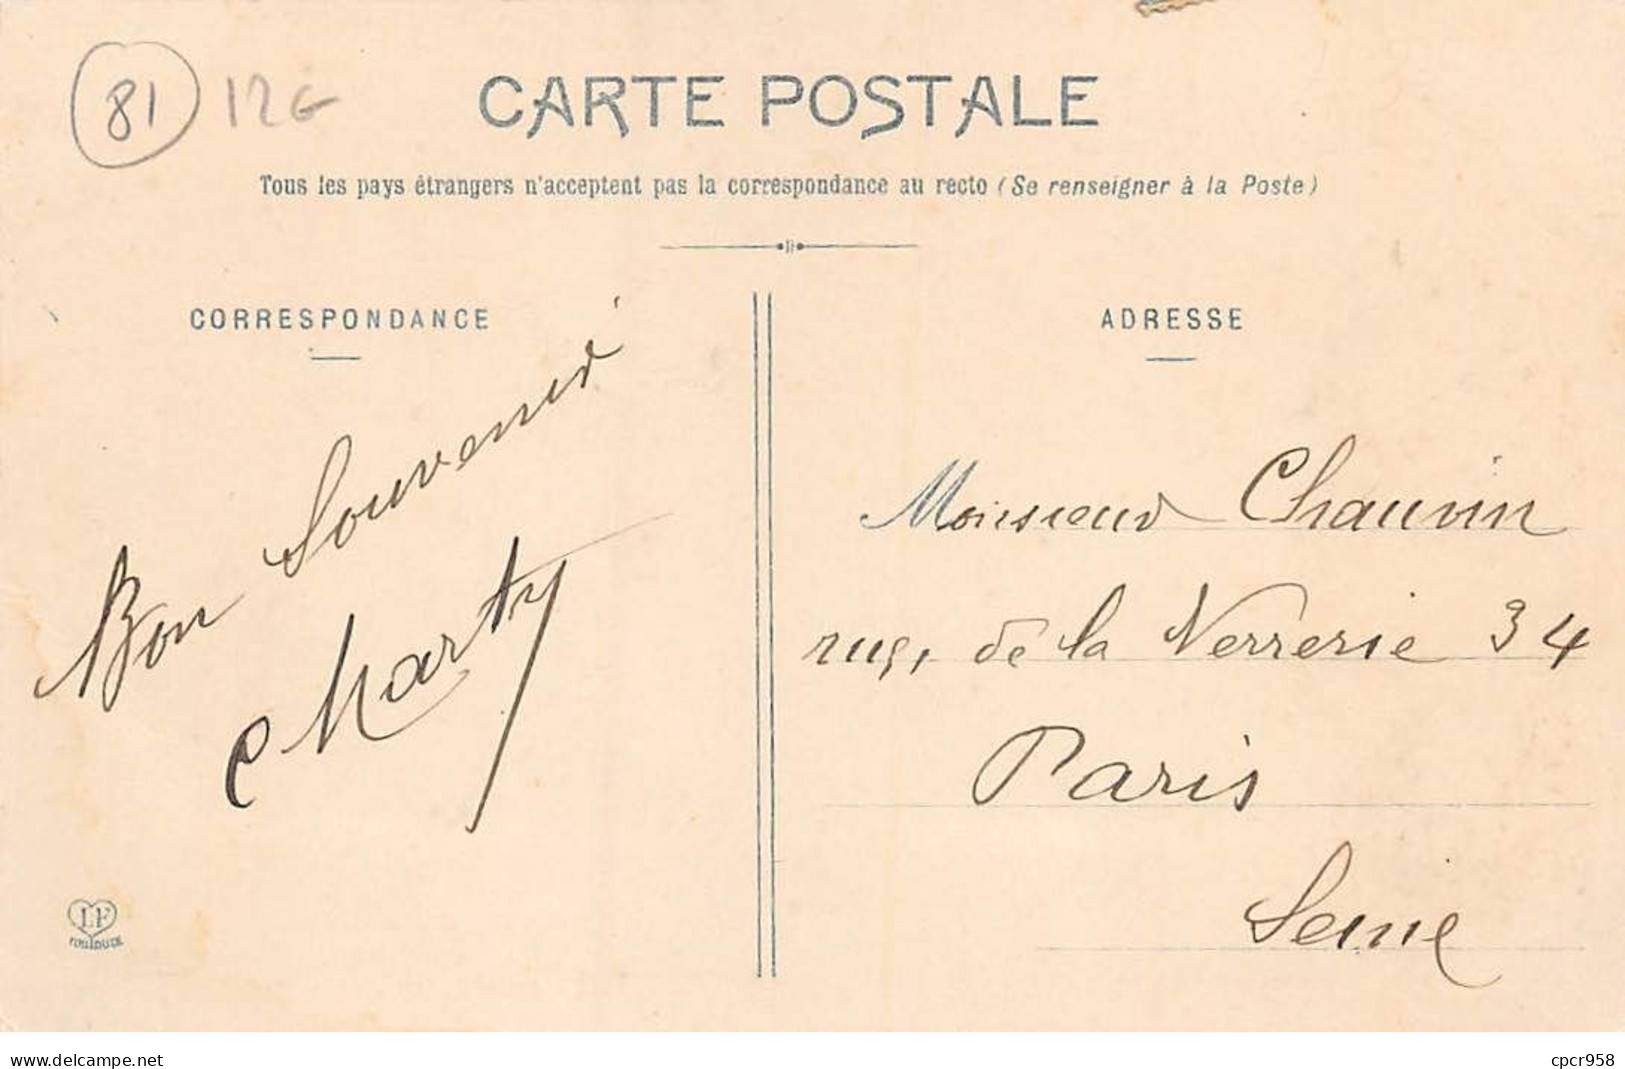 81 12G
CARTE POSTALE
Tous les pays étrangers n'acceptent pas la correspondance au recto (Se renseigner à la Poste)
CORRESPONDANCE
ADRESSE
Bon Souvenir
Marty
Monsieur Chauvin
rue, de la Verrerie 34
Paris
Seine
LF
TOULOUSE
www.delcampe.net
cpcr958